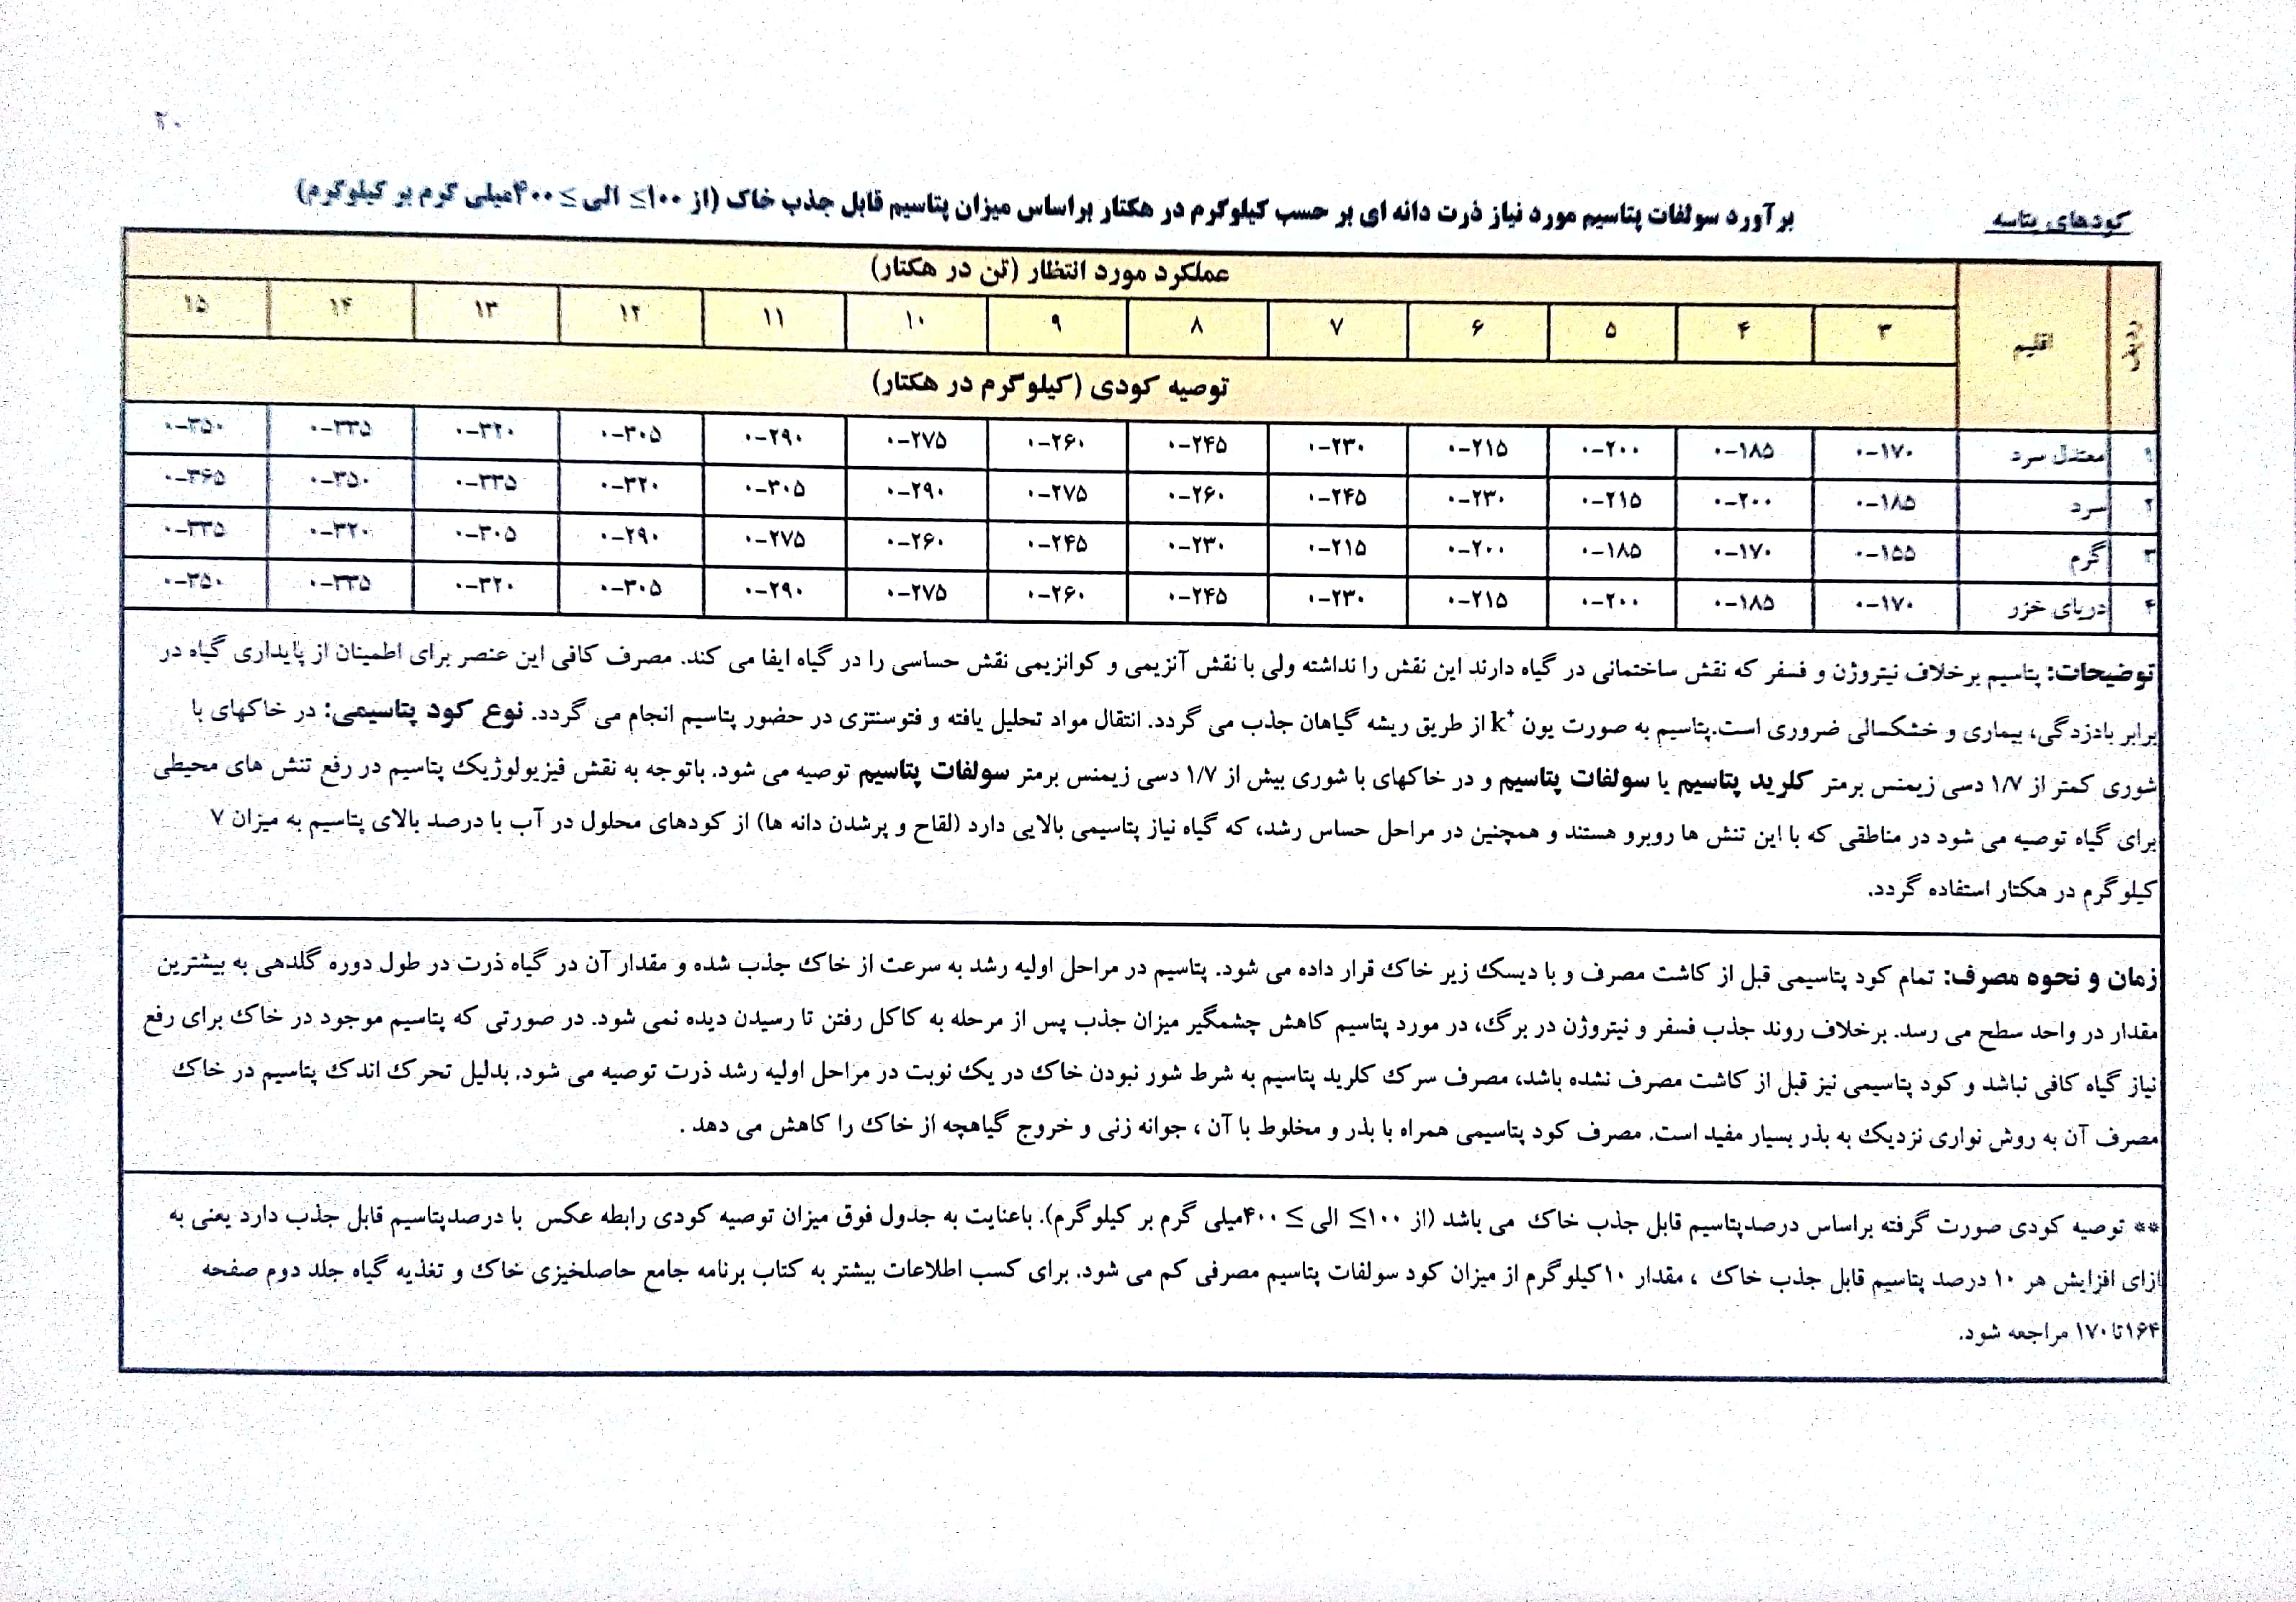 ۲۰
کودهای پتاسه
برآورد سولفات پتاسیم مورد نیاز ذرت دانه ای بر حسب کیلوگرم در هکتار براساس میزان پتاسیم قابل جذب خاک (از ۱۰۰≥ الی ≤۴۰۰میلی گرم بر کیلوگرم)
ردیف اقلیم عملکرد مورد انتظار (تن در هکتار)
۳ ۴ ۵ ۶ ۷ ۸ ۹ ۱۰ ۱۱ ۱۲ ۱۳ ۱۴ ۱۵
توصیه کودی (کیلوگرم در هکتار)
۱ معتدل سرد ۰-۱۷۰ ۰-۱۸۵ ۰-۲۰۰ ۰-۲۱۵ ۰-۲۳۰ ۰-۲۴۵ ۰-۲۶۰ ۰-۲۷۵ ۰-۲۹۰ ۰-۳۰۵ ۰-۳۲۰ ۰-۳۳۵ ۰-۳۵۰
۲ سرد ۰-۱۸۵ ۰-۲۰۰ ۰-۲۱۵ ۰-۲۳۰ ۰-۲۴۵ ۰-۲۶۰ ۰-۲۷۵ ۰-۲۹۰ ۰-۳۰۵ ۰-۳۲۰ ۰-۳۳۵ ۰-۳۵۰ ۰-۳۶۵
۳ گرم ۰-۱۵۵ ۰-۱۷۰ ۰-۱۸۵ ۰-۲۰۰ ۰-۲۱۵ ۰-۲۳۰ ۰-۲۴۵ ۰-۲۶۰ ۰-۲۷۵ ۰-۲۹۰ ۰-۳۰۵ ۰-۳۲۰ ۰-۳۳۵
۴ دریای خزر ۰-۱۷۰ ۰-۱۸۵ ۰-۲۰۰ ۰-۲۱۵ ۰-۲۳۰ ۰-۲۴۵ ۰-۲۶۰ ۰-۲۷۵ ۰-۲۹۰ ۰-۳۰۵ ۰-۳۲۰ ۰-۳۳۵ ۰-۳۵۰
توضیحات: پتاسیم برخلاف نیتروژن و فسفر که نقش ساختمانی در گیاه دارند این نقش را نداشته ولی با نقش آنزیمی و کوانزیمی نقش حساسی را در گیاه ایفا می کند. مصرف کافی این عنصر برای اطمینان از پایداری گیاه در
برابر بادزدگی، بیماری و خشکسالی ضروری است.پتاسیم به صورت یون k⁺ از طریق ریشه گیاهان جذب می گردد. انتقال مواد تحلیل یافته و فتوسنتزی در حضور پتاسیم انجام می گردد. نوع کود پتاسیمی: در خاکهای با
شوری کمتر از ۱/۷ دسی زیمنس برمتر کلرید پتاسیم یا سولفات پتاسیم و در خاکهای با شوری بیش از ۱/۷ دسی زیمنس برمتر سولفات پتاسیم توصیه می شود. باتوجه به نقش فیزیولوژیک پتاسیم در رفع تنش های محیطی
برای گیاه توصیه می شود در مناطقی که با این تنش ها روبرو هستند و همچنین در مراحل حساس رشد، که گیاه نیاز پتاسیمی بالایی دارد (لقاح و پرشدن دانه ها) از کودهای محلول در آب با درصد بالای پتاسیم به میزان ۷
کیلوگرم در هکتار استفاده گردد.
زمان و نحوه مصرف: تمام کود پتاسیمی قبل از کاشت مصرف و با دیسک زیر خاک قرار داده می شود. پتاسیم در مراحل اولیه رشد به سرعت از خاک جذب شده و مقدار آن در گیاه ذرت در طول دوره گلدهی به بیشترین
مقدار در واحد سطح می رسد. برخلاف روند جذب فسفر و نیتروژن در برگ، در مورد پتاسیم کاهش چشمگیر میزان جذب پس از مرحله به کاکل رفتن تا رسیدن دیده نمی شود. در صورتی که پتاسیم موجود در خاک برای رفع
نیاز گیاه کافی نباشد و کود پتاسیمی نیز قبل از کاشت مصرف نشده باشد، مصرف سرک کلرید پتاسیم به شرط شور نبودن خاک در یک نوبت در مراحل اولیه رشد ذرت توصیه می شود. بدلیل تحرک اندک پتاسیم در خاک
مصرف آن به روش نواری نزدیک به بذر بسیار مفید است. مصرف کود پتاسیمی همراه با بذر و مخلوط با آن ، جوانه زنی و خروج گیاهچه از خاک را کاهش می دهد .
** توصیه کودی صورت گرفته براساس درصدپتاسیم قابل جذب خاک می باشد (از ۱۰۰≥ الی ≤ ۴۰۰میلی گرم بر کیلوگرم). باعنایت به جدول فوق میزان توصیه کودی رابطه عکس با درصدپتاسیم قابل جذب دارد یعنی به
ازای افزایش هر ۱۰ درصد پتاسیم قابل جذب خاک ، مقدار ۱۰کیلوگرم از میزان کود سولفات پتاسیم مصرفی کم می شود. برای کسب اطلاعات بیشتر به کتاب برنامه جامع حاصلخیزی خاک و تغذیه گیاه جلد دوم صفحه
۱۶۴تا۱۷۰ مراجعه شود.